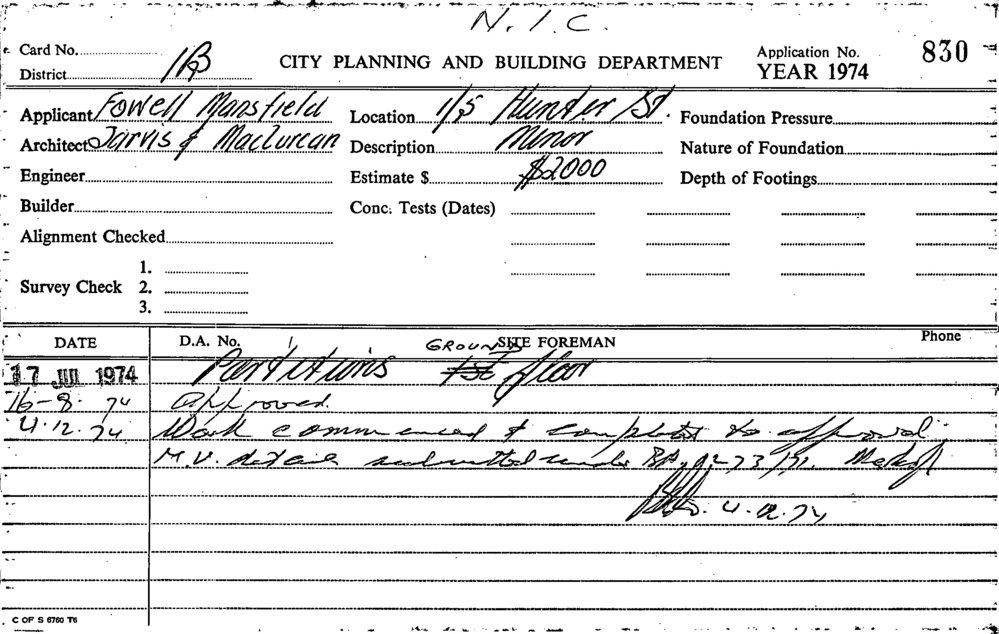 N.I.C.
Card No.
District 1B
CITY PLANNING AND BUILDING DEPARTMENT
Application No. 830
YEAR 1974
Applicant Fowell Mansfield
Architect Jarvis & Maclurcan
Engineer
Builder
Alignment Checked
Survey Check
1.
2.
3.
Location 1/5 Hunter St.
Description Minor
Estimate $ $2000
Conc. Tests (Dates)
Foundation Pressure
Nature of Foundation
Depth of Footings
DATE D.A. No. SITE FOREMAN Phone
17 JUL 1974 Partitions GROUND 1st floor
16-8-74 Approved.
4.12.74 Work commenced & completed to approval.
M.V. details submitted under BA
4.12.74
C OF S 6760 T6